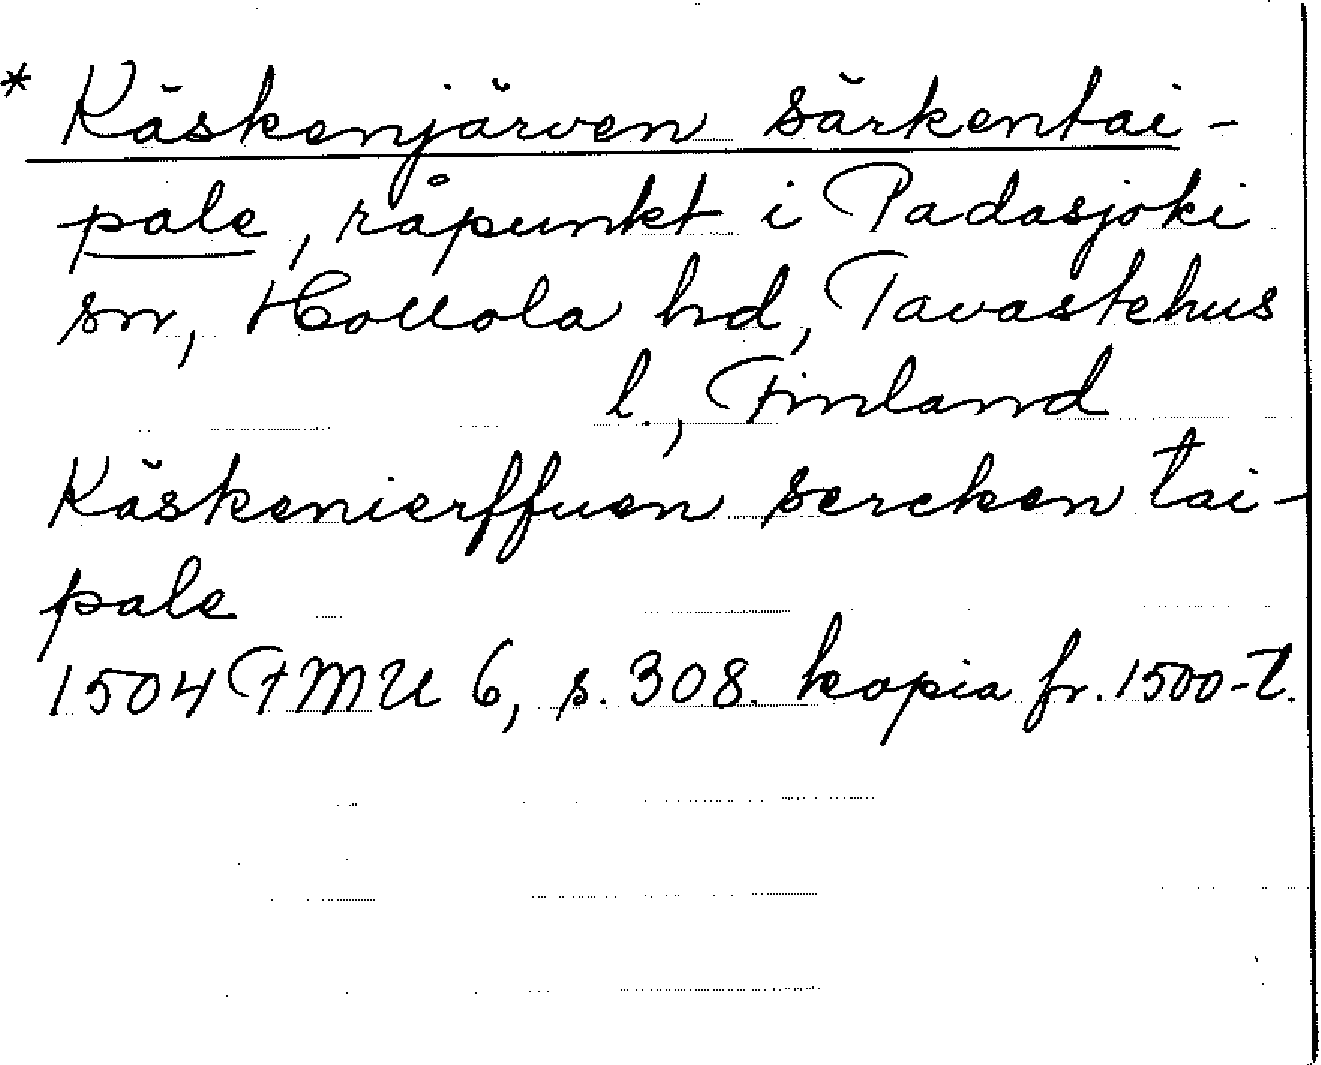 * Käskenjärven särkentai-
pale, råpunkt i Padasjoki
sn, Hollola hd, Tavastehus
l., Finland
Käskenierffuen sercken tai-
pale
1504 FMU 6, s. 308. kopia fr. 1500-t.